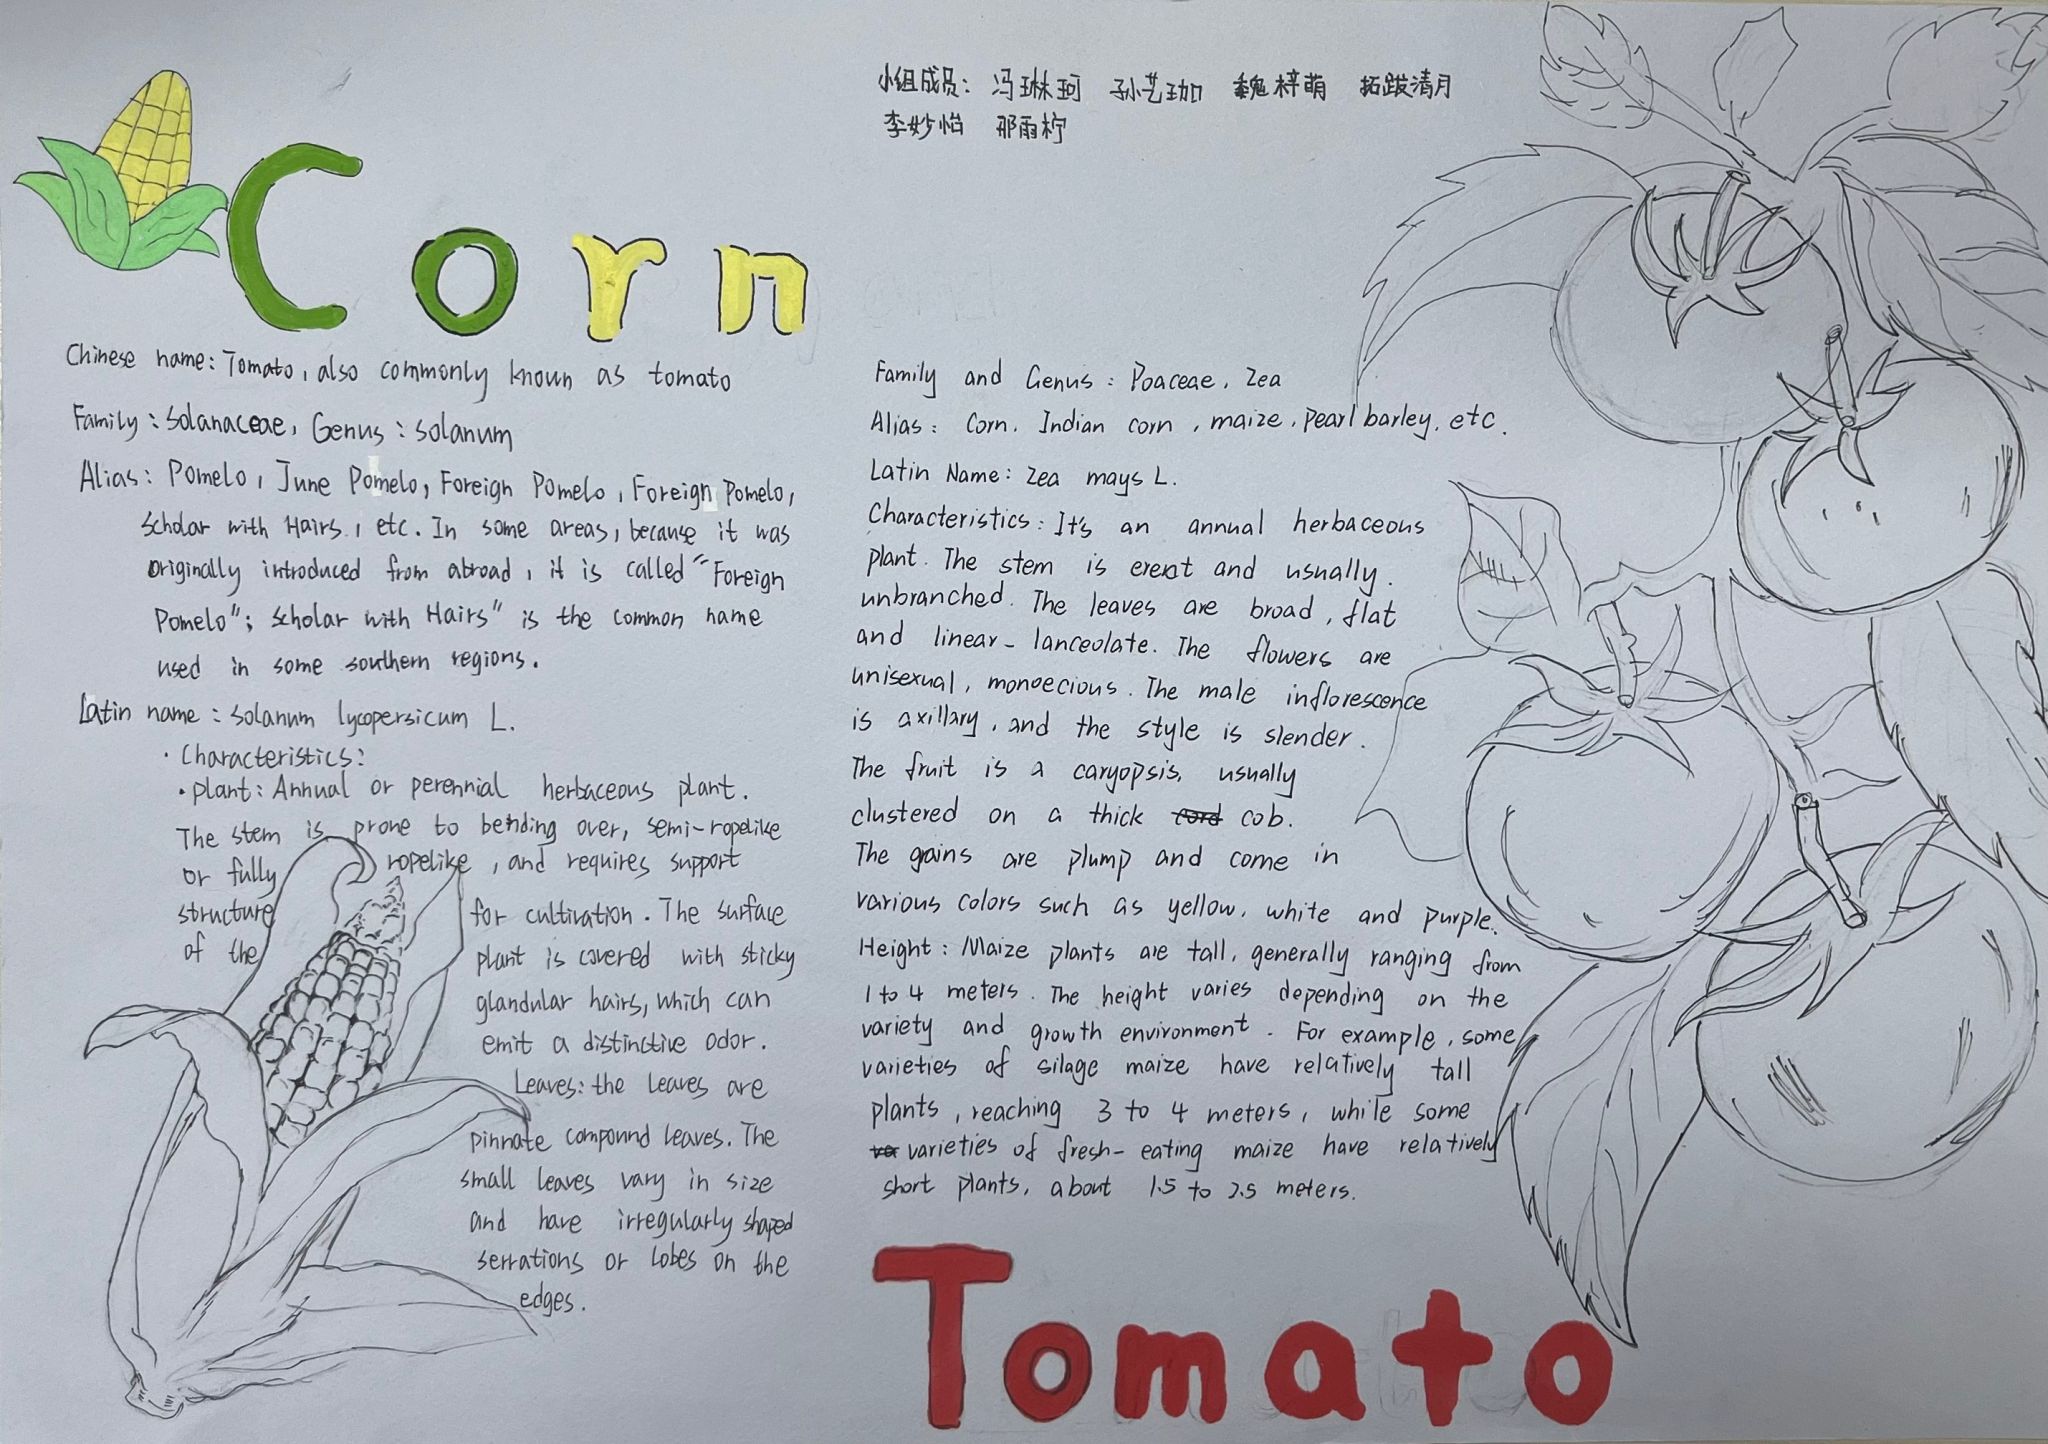 小组成员：冯琳珂 孙艺珈 魏梓萌 拓跋清月
李妙怡 那雨柠
Corn
Chinese name: Tomato, also commonly known as tomato
Family: Solanaceae, Genus: Solanum
Alias: Pomelo, June Pomelo, Foreign Pomelo, Foreign Pomelo,
Scholar with Hairs, etc. In some areas, because it was
originally introduced from abroad, it is called "Foreign
Pomelo"; Scholar with Hairs" is the common name
used in some southern regions.
Latin name: Solanum lycopersicum L.
· Characteristics:
· plant: Annual or perennial herbaceous plant.
The stem is prone to bending over, semi-ropelike
or fully ropelike, and requires support
structure for cultivation. The surface
of the plant is covered with sticky
glandular hairs, which can
emit a distinctive odor.
Leaves: the leaves are
pinnate compound leaves. The
small leaves vary in size
and have irregularly shaped
serrations or lobes on the
edges.
Family and Genus: Poaceae, Zea
Alias: Corn, Indian corn, maize, pearl barley, etc.
Latin Name: Zea mays L.
Characteristics: It's an annual herbaceous
plant. The stem is erect and usually.
unbranched. The leaves are broad, flat
and linear-lanceolate. The flowers are
unisexual, monoecious. The male inflorescence
is axillary, and the style is slender.
The fruit is a caryopsis, usually
clustered on a thick cob.
The grains are plump and come in
various colors such as yellow, white and purple.
Height: Maize plants are tall, generally ranging from
1 to 4 meters. The height varies depending on the
variety and growth environment. For example, some
varieties of silage maize have relatively tall
plants, reaching 3 to 4 meters, while some
varieties of fresh-eating maize have relatively
short plants, about 1.5 to 2.5 meters.
Tomato